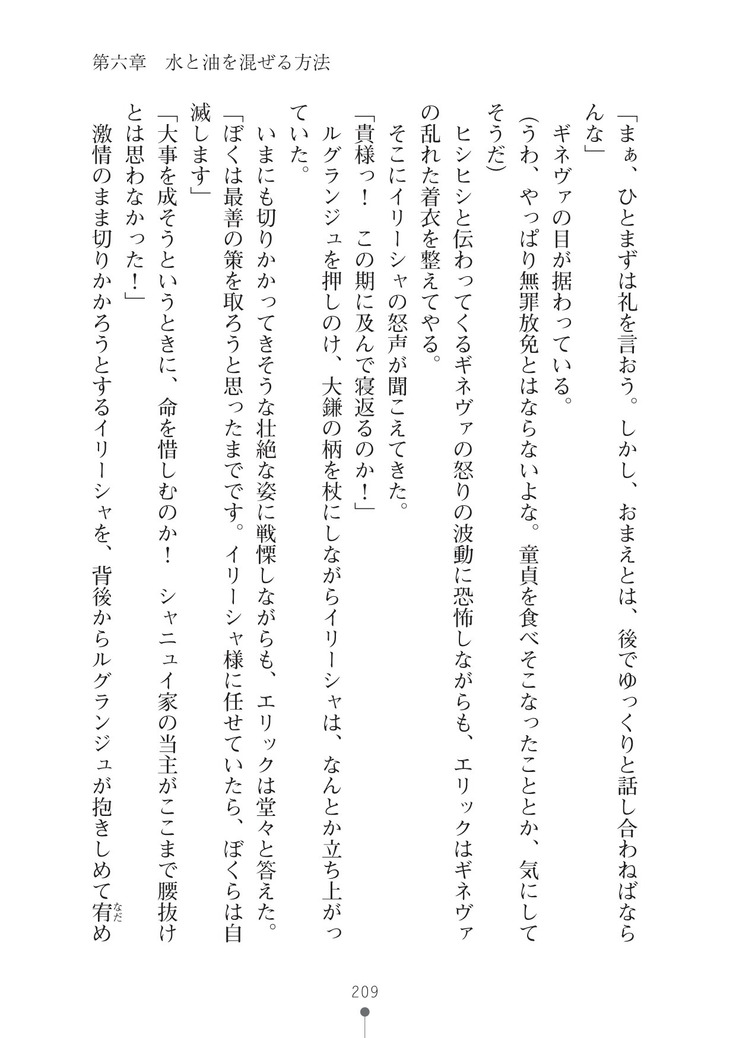 第六章　水と油を混ぜる方法
「まぁ、ひとまずは礼を言おう。しかし、おまえとは、後でゆっくりと話し合わねばなら
んな」
　ギネヴァの目が据わっている。
（うわ、やっぱり無罪放免とはならないよな。童貞を食べそこなったこととか、気にして
そうだ）
　ヒシヒシと伝わってくるギネヴァの怒りの波動に恐怖しながらも、エリックはギネヴァ
の乱れた着衣を整えてやる。
　そこにイリーシャの怒声が聞こえてきた。
「貴様っ！　この期に及んで寝返るのか！」
　ルグランジュを押しのけ、大鎌の柄を杖にしながらイリーシャは、なんとか立ち上がっ
ていた。
　いまにも切りかかってきそうな壮絶な姿に戦慄しながらも、エリックは堂々と答えた。
「ぼくは最善の策を取ろうと思ったまでです。イリーシャ様に任せていたら、ぼくらは自
滅します」
「大事を成そうというときに、命を惜しむのか！　シャニュイ家の当主がここまで腰抜け
とは思わなかった！」
　激情のまま切りかかろうとするイリーシャを、背後からルグランジュが抱きしめて宥め
なだ
209